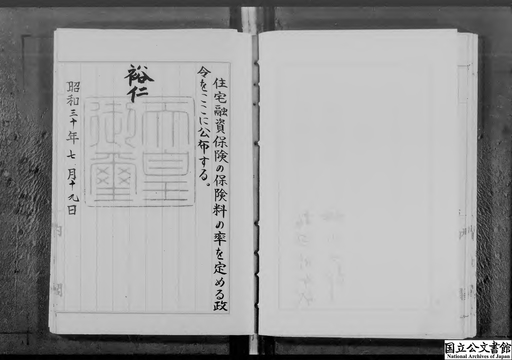 住宅融資保険の保険料の率を定める政
令をここに公布する。
裕仁
天皇
御璽
昭和三十年七月十九日
国立公文書館
National Archives of Japan